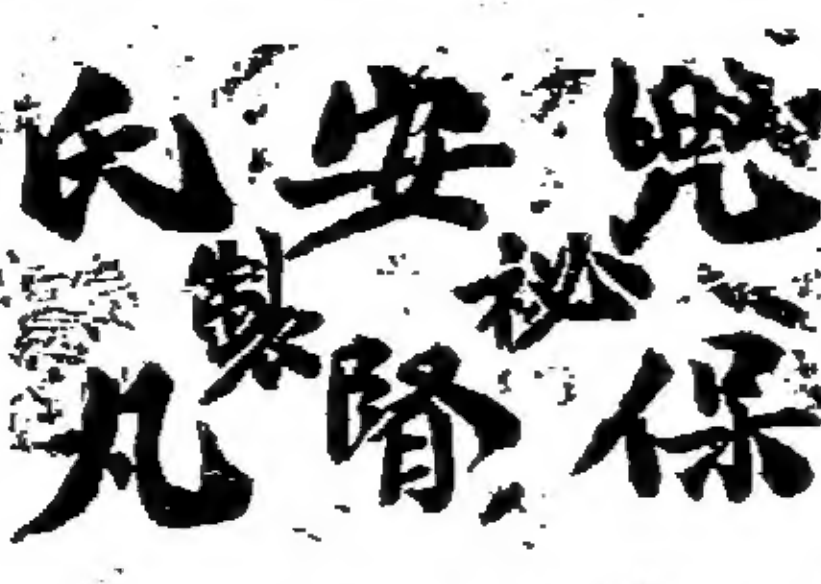 兜安氏
祕製
保腎丸